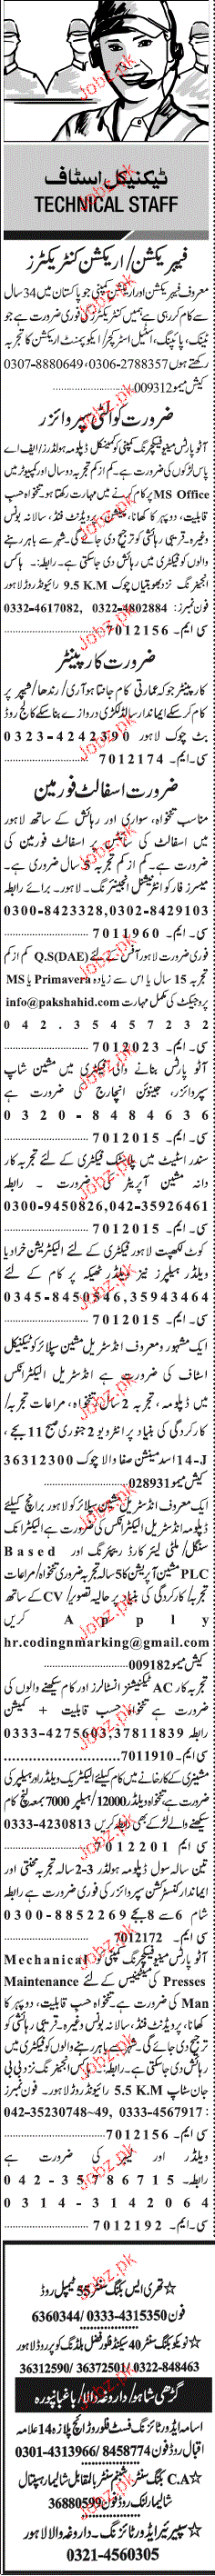 ٹیکنیکل اسٹاف
TECHNICAL STAFF
فیبریکیشن/اریکشن کنٹریکٹرز
معروف فیبریکیشن اور اریکشن کمپنی جو پاکستان میں 34 سال
سے کام کر رہی ہے ہمیں کنٹریکٹرز کی فوری ضرورت ہے جو
ٹینک، پائپنگ، اسٹیل اسٹرکچر/ایکوپمنٹ اریکشن کا تجربہ
رکھتے ہوں 0306-2788357، 0307-8880649
کیش میمو 009312
ضرورت کوالٹی سپروائزر
آٹو پارٹس مینوفیکچرنگ کمپنی کو مکینیکل ڈپلومہ ہولڈرز/ایف اے
پاس لڑکوں کی ضرورت ہے۔ کم از کم تجربہ دو سال اور کمپیوٹر میں
MS Office پر کام کرنے میں مہارت رکھتا ہو تنخواہ حسب
قابلیت، دوپہر کا کھانا، پراویڈنٹ فنڈ، سالانہ بونس
وغیرہ۔ قریبی رہائشی کو ترجیح دی جائے گی۔ شہر سے باہر رہنے
والوں کو فیکٹری میں رہائش دی جا سکتی ہے۔ رابطہ:۔ ہاکس
انجینئرنگ نزد بھوبتیاں چوک 9.5 K.M رائیونڈ روڈ لاہور
فون نمبرز: 0322-4802884 ,0332-4617082
سی ایم۔ 7012156
ضرورت کارپینٹر
کارپینٹر جو کہ عمارتی کام جانتا ہو آری/رندھا/شیپر پر
کام کر سکے ایماندار ہو لکڑی دروازے بنا سکے کالج روڈ
بٹ چوک لاہور 0323-4242790
سی۔ایم۔ 7012174
ضرورت اسفالٹ فورمین
مناسب تنخواہ، سواری اور رہائش کے ساتھ لاہور
میں اسفالٹ کی سائٹ پر اسفالٹ فورمین کی
ضرورت ہے۔ کم از کم تجربہ 5 سال ضروری ہے۔
میسرز فارکو انٹرنیشنل انجینئرنگ۔ لاہور۔ برائے رابطہ
0300-8423328,0302-8429103
سی۔ ایم۔ 7011960
فوری ضرورت لاہور آفس کے لئے Q.S(DAE) کم از کم
تجربہ 15 سال یا اس سے زیادہ Primavera یا MS
پروجیکٹ کی مکمل مہارت info@pakshahid.com
042.35457232
سی۔ ایم۔ 7012023
آٹو پارٹس بنانے والی فیکٹری میں مشین شاپ
سپروائزر، جینوئن انچارج کی ضرورت ہے
0320-8484636
سی۔ ایم۔ 7012015
سندر اسٹیٹ میں پلاسٹک فیکٹری کے لئے تجربہ کار
دانہ مشین آپریٹر کی ضرورت ۔ رابطہ
0300-9450826,042-35926461
سی۔ ایم۔ 7012015
کوٹ لکھپت لاہور فیکٹری کے لئے الیکٹریشن خرادیا
ویلڈر ہیلپرز نیز ٹھیکہ پر کام کے لئے
0345-8450546,35943464
ایک مشہور و معروف انڈسٹریل مشین سپلائر کو ٹیکنیکل
اسٹاف کی ضرورت ہے انڈسٹریل الیکٹرانکس
میں ڈپلومہ، تجربہ 2 سال تنخواہ، مراعات تجربہ/
کارکردگی کی بنیاد پر انٹرویو 2 جنوری صبح 11 بجے،
14-J اسد مینشن صفا والا چوک 36312300
کیش میمو 028931
ایک معروف انڈسٹریل مشین سپلائر کو لاہور برانچ کیلئے
ڈپلومہ انڈسٹریل الیکٹرانکس کی ضرورت ہے الیکٹرانک
سنگل/ملٹی لیئر کارڈ ریپئرنگ اور Based
PLC مشین آپریشن کا 5 سالہ تجربہ ضروری تنخواہ/مراعات
تجربہ/کارکردگی کی بنیاد پر حالیہ تصویر/CV کے ساتھ
Apply کریں
hr.codingnmarking@gmail.com
کیش میمو 009182
تجربہ کار AC ٹیکنیشنز انسٹالرز اور کام سیکھنے والوں کی
ضرورت ہے تنخواہ حسب قابلیت + کمیشن
رابطہ 0333-4275603,37811839
سی ایم۔ 7011910
مشینری کے کارخانے میں کام کیلئے الیکٹریک ویلڈر اور ہیلپر کی
ضرورت ہے تنخواہ ویلڈر 12000/ہیلپر 7000 بمعہ لنچ کام
سیکھنے والے لڑکے بھی رابطہ کریں 0333-4230813
سی ایم 7012201
تین سالہ سول ڈپلومہ ہولڈر 2-3 سالہ تجربہ محنتی اور
ایماندار کنسٹرکشن سپروائزر کی فوری ضرورت ہے رابطہ
شام 6 سے 8 بجے 0300-8852269
سی ایم۔ 7012172
آٹو پارٹس مینوفیکچرنگ کمپنی کو Mechanical
Presses کی مینٹیننس کے لئے Maintenance
Man کی ضرورت ہے۔ تنخواہ حسب قابلیت، دوپہر کا
کھانا، پراویڈنٹ فنڈ، سالانہ بونس وغیرہ۔ قریبی رہائشی کو
ترجیح دی جائے گی۔ شہر سے باہر رہنے والوں کو فیکٹری میں
رہائش دی جا سکتی ہے۔ رابطہ: ہاکس انجینئرنگ نزد پی پی
جان شاپ 5.5 K.M رائیونڈ روڈ لاہور۔ فون نمبرز
:042-35230748~49, 0333-4567917
سی۔ایم۔ 7012156
ویلڈر اور کی ضرورت ہے
رابطہ۔ 042-35786715
0314-3142064
سی۔ایم۔ 7012192
☆ تھری ایس بکنگ سنٹر 55 ٹیمپل روڈ
فون 0333-4315350 /6360344
☆ نویکو بکنگ سنٹر 40 سیکنڈ فلور فضل بلڈنگ کوپر روڈ لاہور
0322-848463 /36372501 /36312590
گڑھی شاہو/داروغہ والا/باغبانپورہ
اسامہ ایڈورٹائزنگ فسٹ فلور رائج پلازہ 14 علامہ
اقبال روڈ فون 8458774 /0301-4313966
☆ C.A بکنگ سنٹر شبنم سنٹر بالمقابل شالیمار ہسپتال
شالیمار لنک روڈ فون 36880599
☆ سپیریئر ایڈورٹائزنگ۔ داروغہ والا لاہور
0321-4560305
Jobz.pk